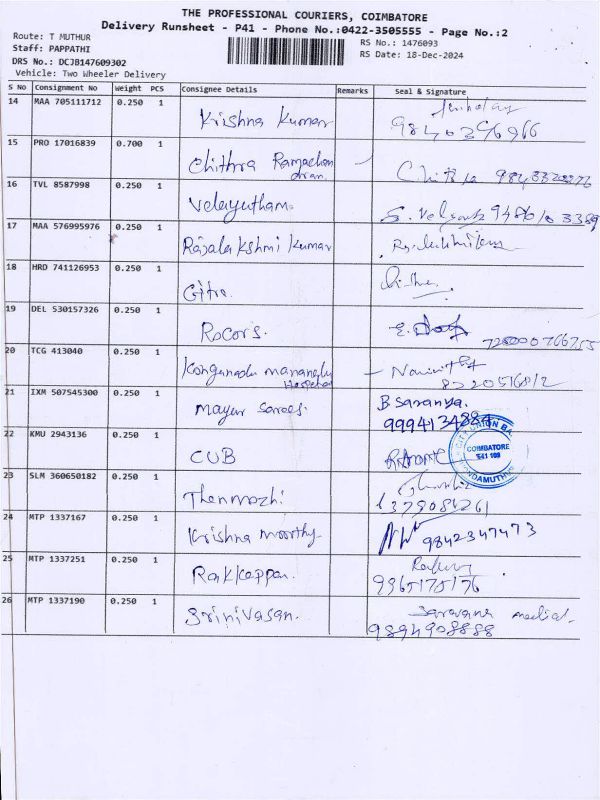 THE PROFESSIONAL COURIERS, COIMBATORE
Delivery Runsheet - P41 - Phone No.:0422-3505555 - Page No.:2
Route: T MUTHUR
Staff: PAPPATHI
DRS No.: DCJB147609302
Vehicle: Two Wheeler Delivery
RS No.: 1476093
RS Date: 18-Dec-2024
S No Consignment No Weight PCS Consignee Details Remarks Seal & Signature
14 MAA 705111712 0.250 1 Krishna Kumar
15 PRO 17016839 0.700 1 Chithra Ramachandran
16 TVL 8587998 0.250 1 Velayutham
17 MAA 576995976 0.250 1 Rajalakshmi Kumar
18 HRD 741126953 0.250 1 Gitra
19 DEL 530157326 0.250 1 Rocors.
20 TCG 413040 0.250 1 Hospital
8220516812
21 IXM 507545300 0.250 1 Mayur Sarees. B Saranya.
9994134884
22 KMU 2943136 0.250 1 CUB
COIMBATORE
23 SLM 360650182 0.250 1 Thenmozhi
24 MTP 1337167 0.250 1 Krishna moorthy 9842347473
25 MTP 1337251 0.250 1 Rakkappan.
9965175176
26 MTP 1337190 0.250 1 Srinivasan. Saravana medical.
9894908888